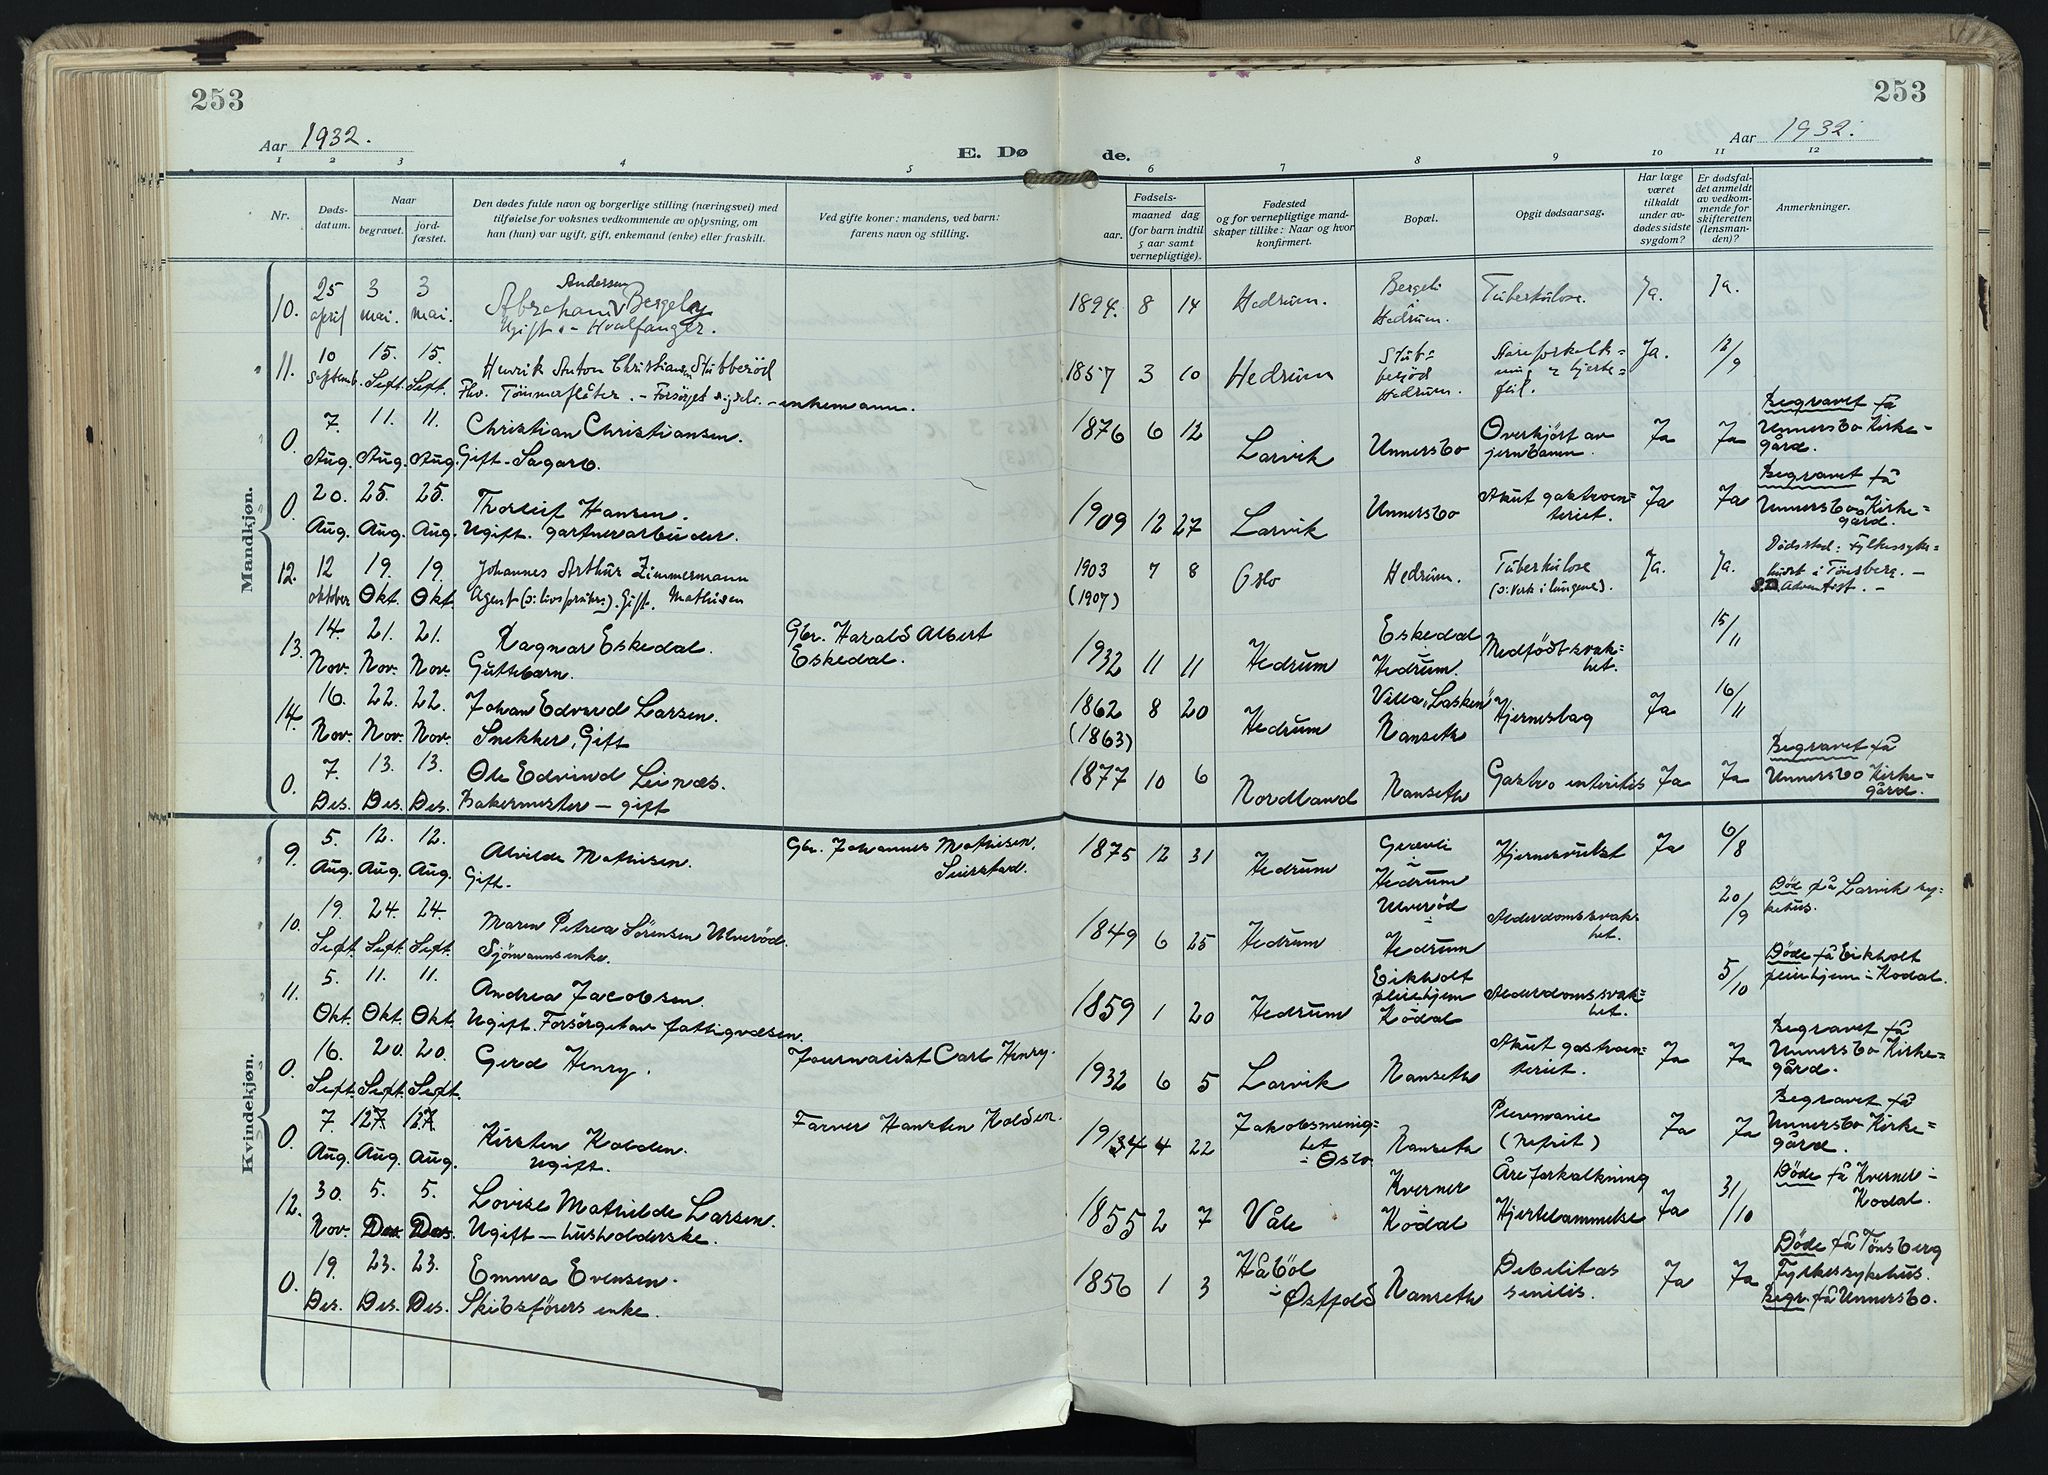 253
253
Aar 1932.
Aar 1932.
E. Dø de.
1 2 3 4 5 6 7 8 9 10 11 12
Nr.
Døds-
datum.
Naar
begravet.
jord-
fæstet.
Den dødes fulde navn og borgerlige stilling (næringsvei) med
tilføielse for voksnes vedkommende av oplysning, om
han (hun) var ugift, gift, enkemand (enke) eller fraskilt.
Ved gifte koner: mandens, ved barn:
farens navn og stilling.
Fødsels-
aar.
maaned dag
(for barn indtil
5 aar samt
vernepligtige).
Fødested
og for vernepligtige mand-
skaper tillike: Naar og hvor
konfirmert.
Bopæl.
Opgit dødsaarsag.
Har læge
været
tilkaldt
under av-
dødes sidste
sygdom?
Er dødsfal-
det anmeldt
av vedkom-
mende for
skifteretten
(lensman-
den)?
Anmerkninger.
Mandkjøn.
10. 25 april 3 mai. 3 mai.
Andersen
Abraham Bergeby
Ugift. - Hvalfanger.
1894. 8 14 Hedrum. Bergeli Hedrum. Tuberkulose. Ja. Ja.
11. 10 Septemb. 15. Sept. 15. Sept.
Henrik Anton Christiansen Stubberød
Fhv. Tømmerfløter. - Forsørget sig selv. - enkemann.
1857 3 10 Hedrum Stub-
berød
Hedrum. Åreforkalk-
ning & hjerte-
feil. Ja. 12/9
0. 7. Aug. 11. Aug. 11. Aug.
Christian Christiansen.
Gift. Sagarb.
1876 6 12 Larvik Unnersbo Overkjørt av
jernbanen. Ja Ja Begravet på
Unnersbo Kirke-
gård.
0. 20. Aug. 25. Aug. 25. Aug.
Thorleif Hansen.
Ugift. gartnerarbeider.
1909 12 27 Larvik Unnersbo Akut gastroen-
terict. Ja Ja Begravet på
Unnersbo Kirke-
gård.
12. 12 oktober 19. Okt. 19. Okt.
Johannes Arthur Zimmermann
Agent (o: livsforsikrs). Gift. Mathisen
1903
(1907) 7 8 Oslo Hedrum. Tuberkulose
(o: verk i lungene). Ja. Ja. Dødssted: Fylkessyke-
huset i Tønsberg. -
S.D. Adventist. -
13. 14. Nov. 21. Nov. 21. Nov.
Ragnar Eskedal.
Guttebarn.
Gbr. Harald Albert
Eskedal.
1932 11 11 Hedrum Eskedal
Hedrum. Medfødt svak-
het. 15/11
14. 16. Nov. 22. Nov. 22. Nov.
Johan Edvard Larsen.
Snekker, Gift
1862
(1863) 8 20 Hedrum Villa "Lasken"
Nanseth Hjerneslag Ja 16/11
0. 7. Des. 13. Des. 13. Des.
Ole Edvind Leinæs.
Bakermester - gift
1877 10 6 Nordland Nanseth Gastro enteritis Ja Ja Begravet på
Unnersbo Kirke-
gård.
Kvindekjøn.
9. 5. Aug. 12. Aug. 12. Aug.
Alvilde Mathisen.
Gift.
Gbr. Johannes Mathisen,
Seierstad.
1875 12 31 Hedrum Gjerdi
i
Hedrum Hjernesvulst Ja 6/8
10. 19. Sept. 24. Sept. 24. Sept.
Maren Petrea Sørensen Ulverød.
Sjømannsenke.
1849 6 25 Hedrum Ulverød
i
Hedrum Alderdomssvak-
het. 20/9 Død på Larvik sy-
kehus.
11. 5. Okt. 11. Okt. 11. Okt.
Andrea Jacobsen.
Ugift. Forsørget av fattigvæsen.
1859 1 20 Hedrum Eikholt
pleiehjem
Kodal Alderdomssvak-
het. 5/10 Døde på Eikholt
pleiehjem i Kodal.
0. 16. Sept. 20. Sept. 20. Sept.
Gerd Henry.
Journalist Carl Henry.
1932 6 5 Larvik Nanseth Akut gastroen-
teriet. Ja Ja Begravet på
Unnersbo Kirke-
gård.
0. 7. Aug. 12 Aug. 12 Aug.
Kirsten Kolden.
Ugift.
Farver Hansten Kolden.
1934 4 22 Jakobsmenig-
het
i Oslo. Nanseth Pneumonie
(Nefrit) Ja Ja Begravet på
Unnersbo Kirke-
gård.
12. 30. Nov. 5. Des. 5. Des.
Lovise Mathilde Larsen.
Ugift - husholderske.
1855 2 7 Våle Kverner
i
Kodal Åreforkalkning
Hjertelammelse Ja 31/10 Døde på Kverner i
Kodal.
0. 19. Des. 23. Des. 23. Des.
Emma Evensen.
Skibsførers enke.
1856 1 3 Håbøl
i
Østfold Nanseth Debilitas
senilis. Ja Ja Døde på Tønsberg
Fylkessykehus.
Begr. på Unnersbo.